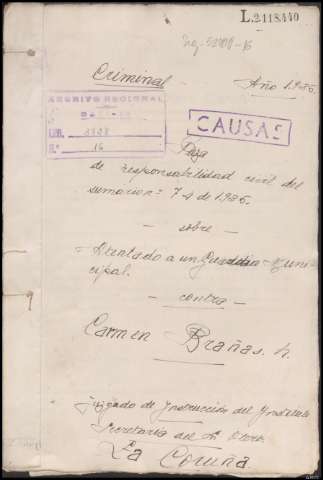 L.2118440
Sig-53908-16
Criminal - Año 1.936.
ARCHIVO REGIONAL
GALICIA
LEG. 3908
N.º 16
CAUSAS
Pieza
de responsabilidad civil del
sumario nº 74 de 1936.
- sobre -
= Atentado a un Guardia muni-
cipal.
- contra -
Carmen Brañas.
Juzgado de Instrucción del Instituto
Secretaría del
La Coruña